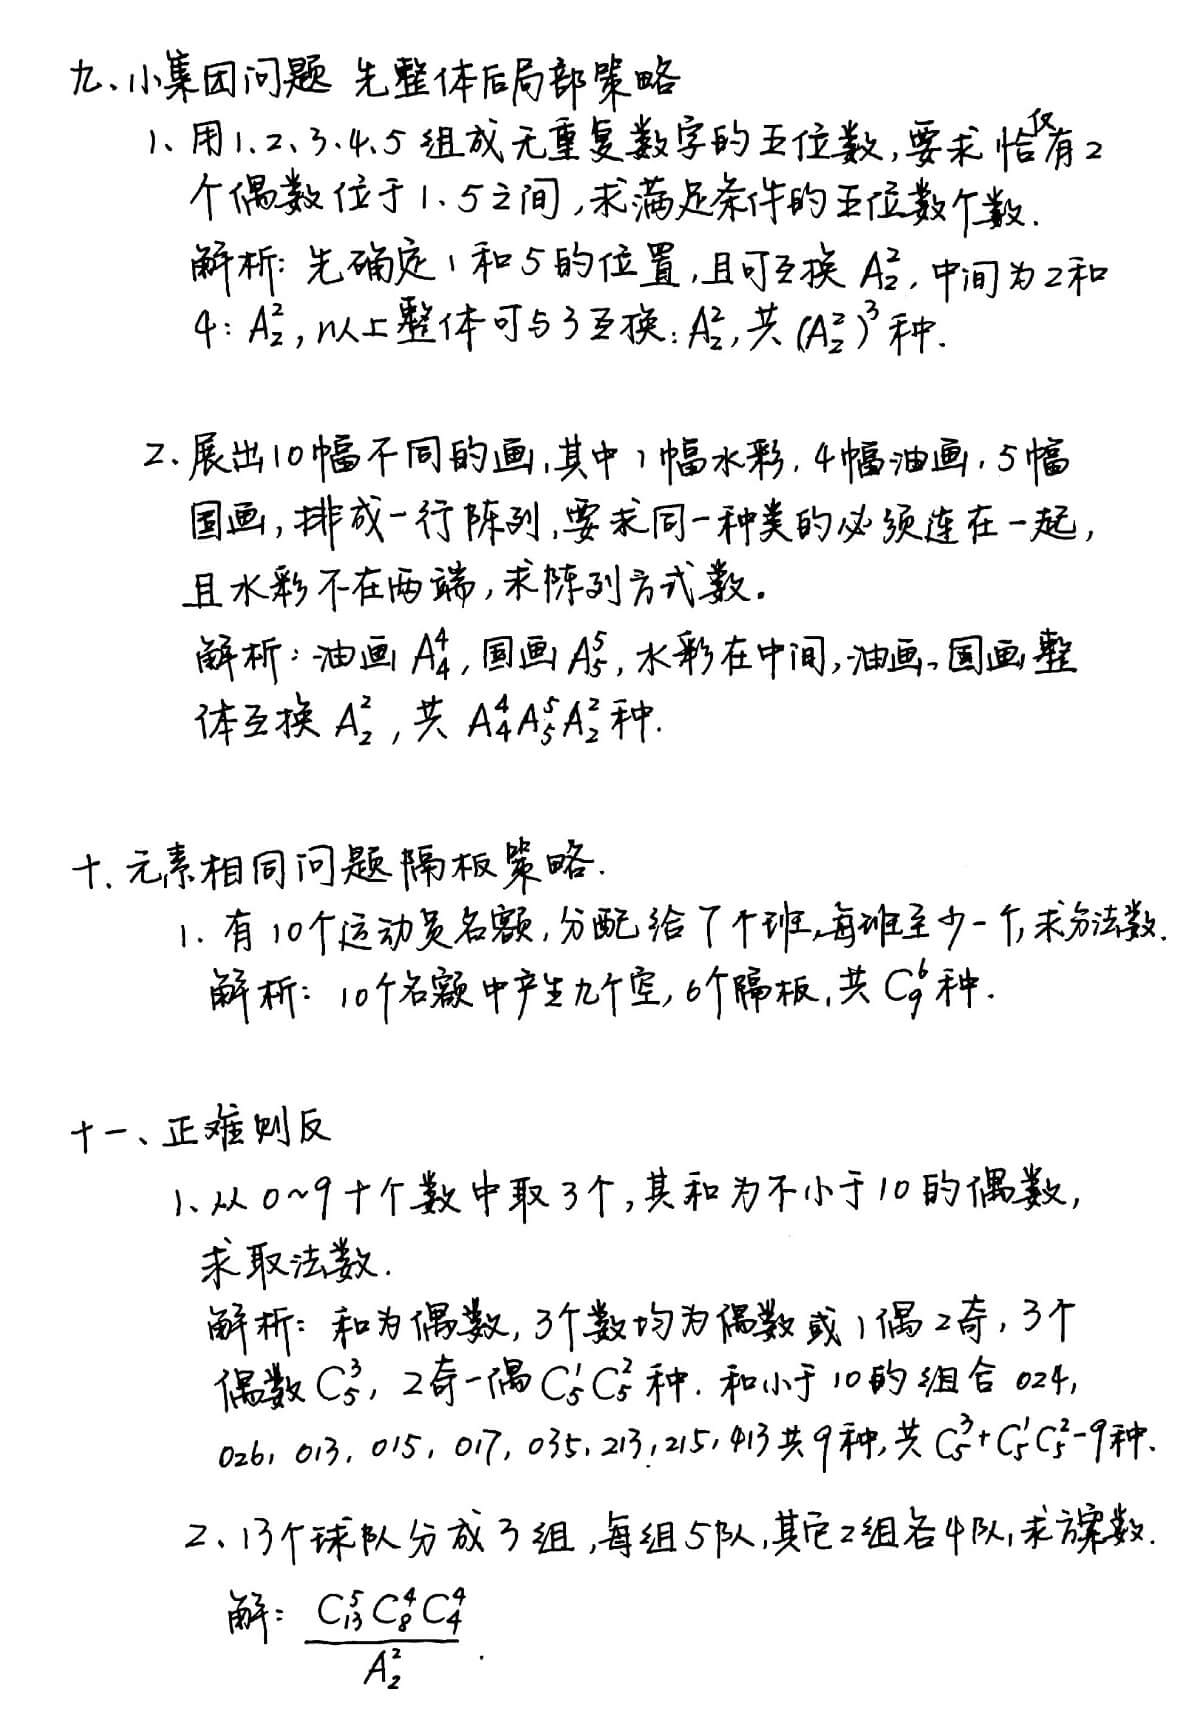 九、小集团问题 先整体后局部策略
1、用1.2.3.4.5组成无重复数字的五位数,要求恰仅有2
个偶数位于1.5之间,求满足条件的五位数个数.
解析: 先确定1和5的位置,且可互换 A₂²,中间为2和
4: A₂²,以上整体可与3互换: A₂²,共(A₂²)³种.
2、展出10幅不同的画,其中1幅水彩,4幅油画,5幅
国画,排成一行陈列,要求同一种类的必须连在一起,
且水彩不在两端,求陈列方式数.
解析: 油画 A₄⁴,国画 A₅⁵,水彩在中间,油画、国画整
体互换 A₂²,共 A₄⁴A₅⁵A₂²种.
十、元素相同问题隔板策略.
1. 有10个运动员名额,分配给7个班,每班至少一个,求分法数.
解析: 10个名额中产生九个空,6个隔板,共C₉⁶种.
十一、正难则反
1、从0~9十个数中取3个,其和为不小于10的偶数,
求取法数.
解析: 和为偶数,3个数均为偶数或1偶2奇,3个
偶数C₅³,2奇一偶C₅¹C₅²种.和小于10的组合 024,
026,013,015,017,035,213,215,413共9种,共C₅³+C₅¹C₅²-9种.
2、13个球队分成3组,每组5队,其它2组各4队,求方案数.
解: C₁₃⁵C₈⁴C₄⁴
A₂² .